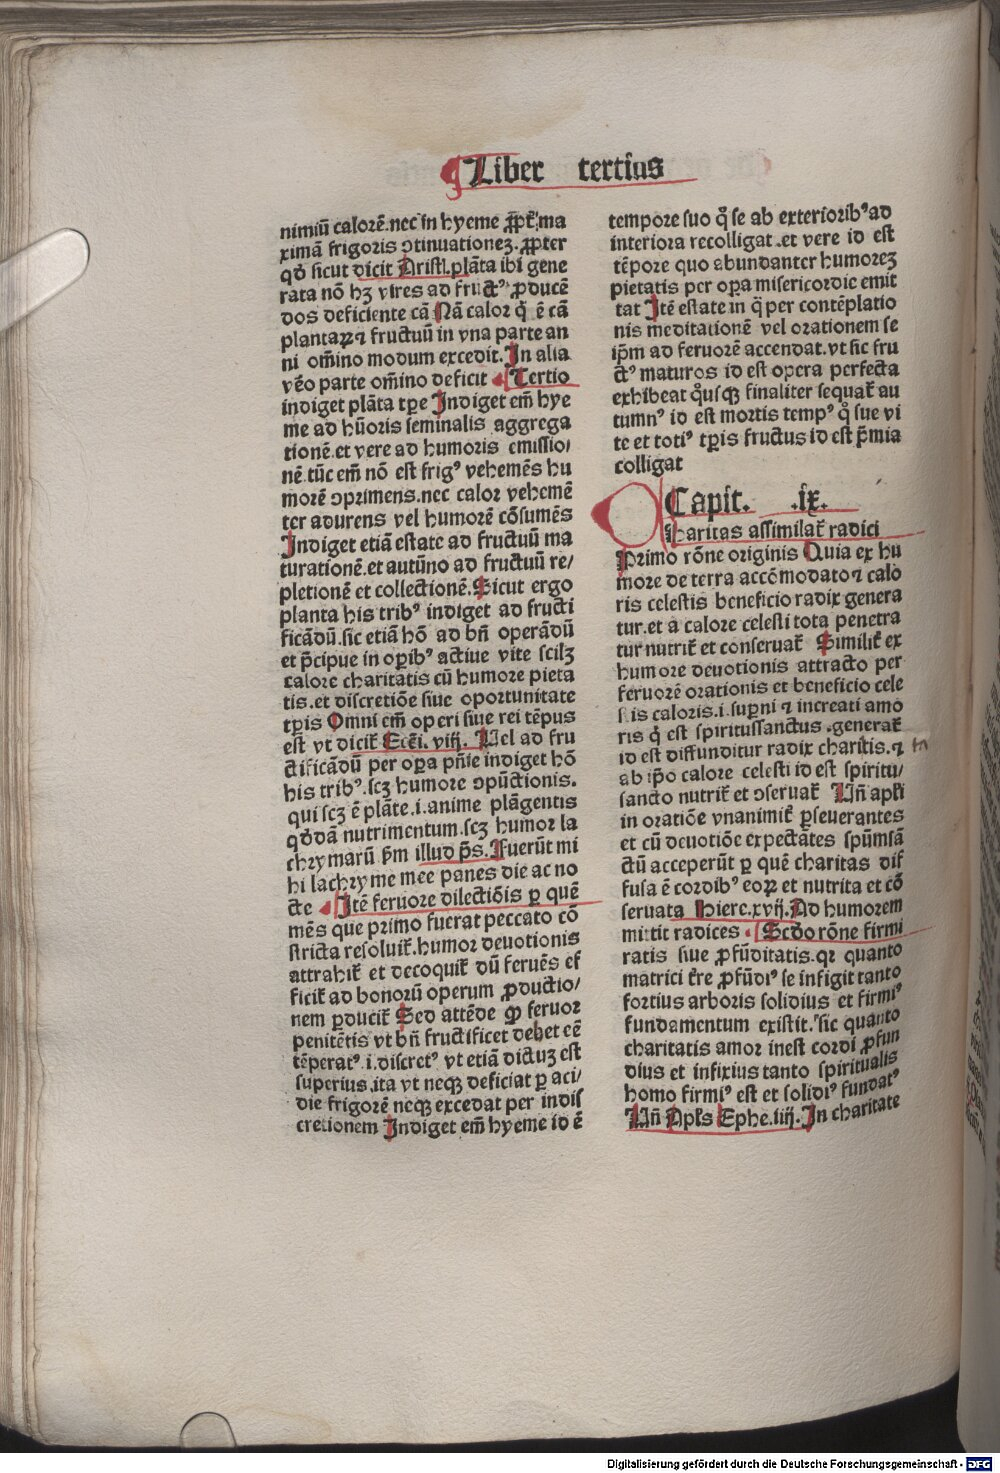 Liber tertius
nimiũ calorẽ.nec in hyeme ꝓpt̃ ma
ximã frigoris ↄtinuationeꝫ.ꝓpter
qd̓ sicut dicit Aristl.plãta ibi gene
rata nõ hꝫ vires ad fructꝰ ꝓducẽ
dos deficiente cã Nã calor q̇ ẽ cã
plantaꝝ ⁊ fructuũ in vna parte an
ni om̃ino modum excedit. In alia
v̓o parte om̃ino deficit Tertio
indiget plãta tꝑe Indiget em̃ hye
me ad hũoris seminalis aggrega
tionẽ.et vere ad humoris emissio/
nẽ.tũc em̃ nõ est frigꝰ vehemẽs hu
morẽ ↄprimens.nec calor vehemẽ
ter adurens vel humorẽ cõsumẽs
Indiget etiã estate ad fructuũ ma
turationẽ.et autũno ad fructuũ re/
pletionẽ et collectionẽ. Sicut ergo
planta his tribꝰ indiget ad fructi
ficãdũ.sic etiã hõ ad bñ operãdũ
et p̃cipue in oꝑibꝰ actiue vite scilꝫ
calore charitatis cũ humore pieta
tis.et discretiõe siue oportunitate
tꝑis Omni em̃ operi siue rei tẽpus
est vt dicit̃ Ecc̃i. viij. Uel ad fru
ctificãdũ per oꝑa pñie indiget hõ
his tribꝰ.scꝫ humore ↄpũctionis.
qui scꝫ ẽ plãte.i.anime plãgentis
qd̓dã nutrimentum.scꝫ humor la
chrymarũ ẜm illud ps̃. Fuerũt mi
hi lachryme mee panes die ac no
cte Itẽ feruore dilectiõis ꝑ quẽ
mẽs que primo fuerat peccato cõ
stricta resoluit̃.humor deuotionis
attrahit̃ et decoquit̃ dũ feruẽs ef
ficit̃ ad bonorũ operum ꝓductio/
nem ꝑducit̃ Sed attẽde ꝙ feruor
penitẽtis vt bñ fructificet debet eẽ
tẽperatꝰ.i.discretꝰ vt etiã dictuꝫ est
superius.ita vt neqꝫ deficiat ꝑ aci/
die frigorẽ neqꝫ excedat per indis
cretionem Indiget em̃ hyeme id ẽ
tempore suo q̊ se ab exterioribꝰ ad
interiora recolligat.et vere id est
tẽpore quo abundanter humoreꝫ
pietatis per oꝑa misericordie emit
tat Itẽ estate in q̃ per contẽplatio
nis meditationẽ vel orationem se
ip̃m ad feruorẽ accendat.vt sic fru
ctꝰ maturos id est opera perfecta
exhibeat q̊usqꝫ finaliter sequat̃ au
tumnꝰ id est mortis tempꝰ q̊ sue vi
te et totiꝰ tꝑis fructus id est p̃mia
colligat
Capit. .ix.
haritas assimilat̃ radici
Primo rõne originis Quia ex hu
more de terra accõmodato ⁊ calo
ris celestis beneficio radix genera
tur.et a calore celesti tota penetra
tur nutrit̃ et conseruat̃ Similit̃ ex
humore deuotionis attracto per
feruorẽ orationis et beneficio cele
stis caloris.i.suꝑni ⁊ increati amo
ris q̇ est spiritussanctus.generat̃
id est diffunditur radix charitis.⁊ ta
ab ip̃o calore celesti id est spiritu/
sancto nutrit̃ et ↄseruat̃ Uñ apl̃i
in oratiõe vnanimit̃ ꝑseuerantes
et cũ deuotiõe expectãtes spũmsã
ctũ acceperũt ꝑ quẽ charitas dif
fusa ẽ cordibꝰ eoꝝ et nutrita et cõ
seruata Hiere.xvij. Ad humorem
mittit radices Scd̓o rõne firmi
ratis siue ꝓfũditatis.qꝛ quanto
matrici t̃re ꝓfũdiꝰ se infigit tanto
fortius arboris solidius et firmiꝰ
fundamentum existit.sic quanto
charitatis amor inest cordi ꝓfun
dius et infixius tanto spiritualis
homo firmiꝰ est et solidiꝰ fundatꝰ
Uñ Apl̃s Ephe.iiij. In charitate
Digitalisierung gefördert durch die Deutsche Forschungsgemeinschaft - DFG